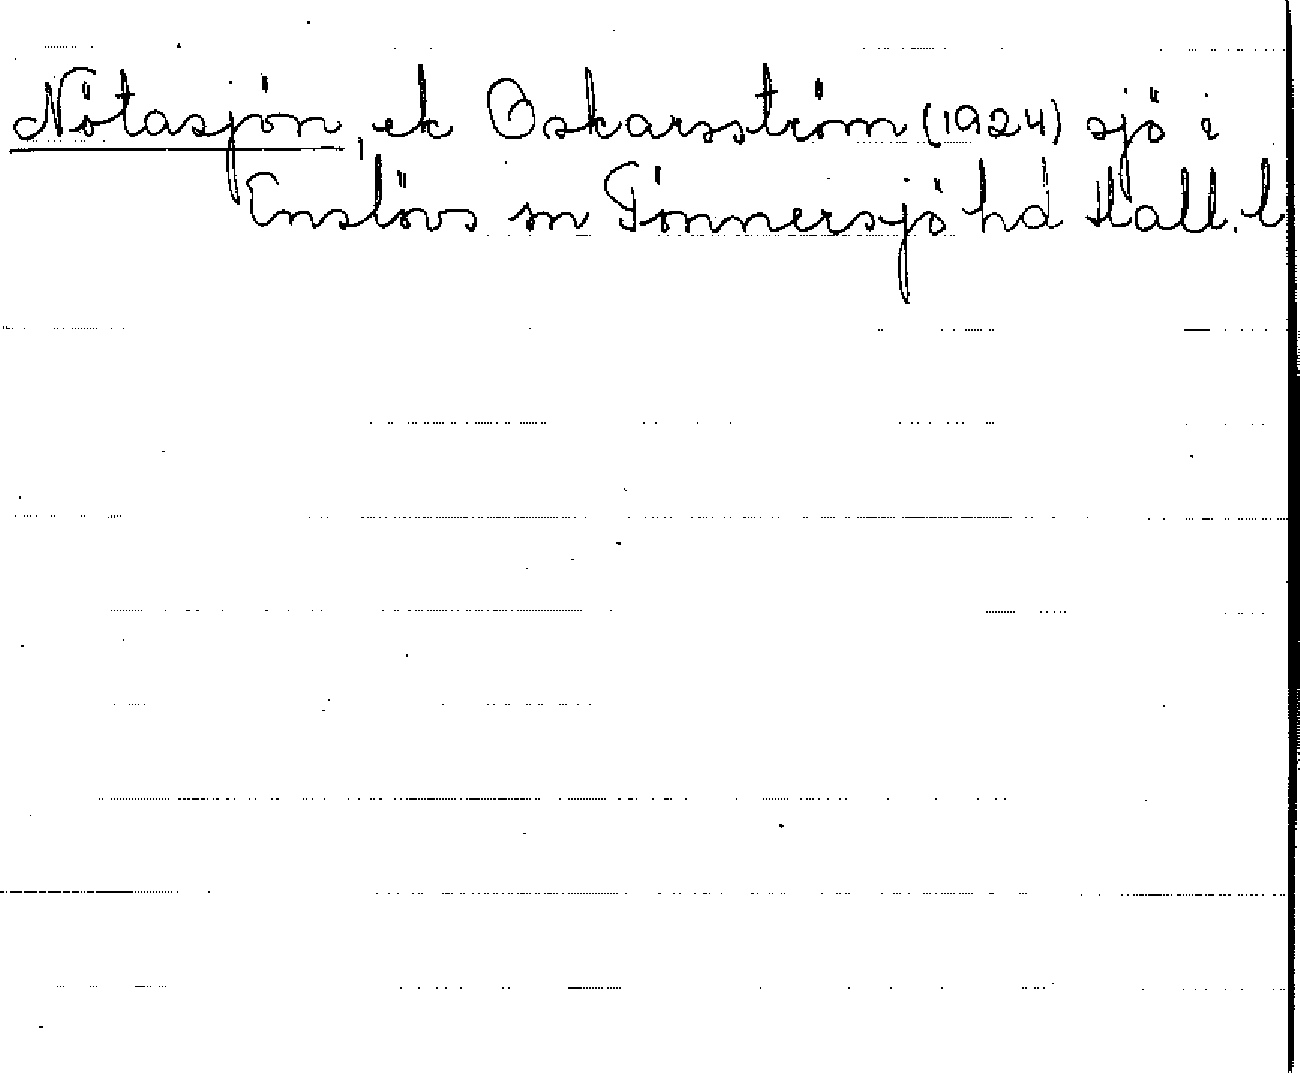 Nötasjön, ek Oskarsström (1924) sjö i
Enslövs sn Tönnersjö hd Hall. l